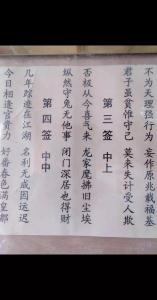 不为天理强行为　妄作原兆载福基
君子虽贫惟守己　莫来失计受人欺
第三签　中上
否极从今喜气来　龙家魔拂旧尘埃
纵然守兔无他事　闭门深居也得财
第四签　中中
几年踪迹在江湖　名利无成因运迟
今日相逢官贵力　好番春色满皇都